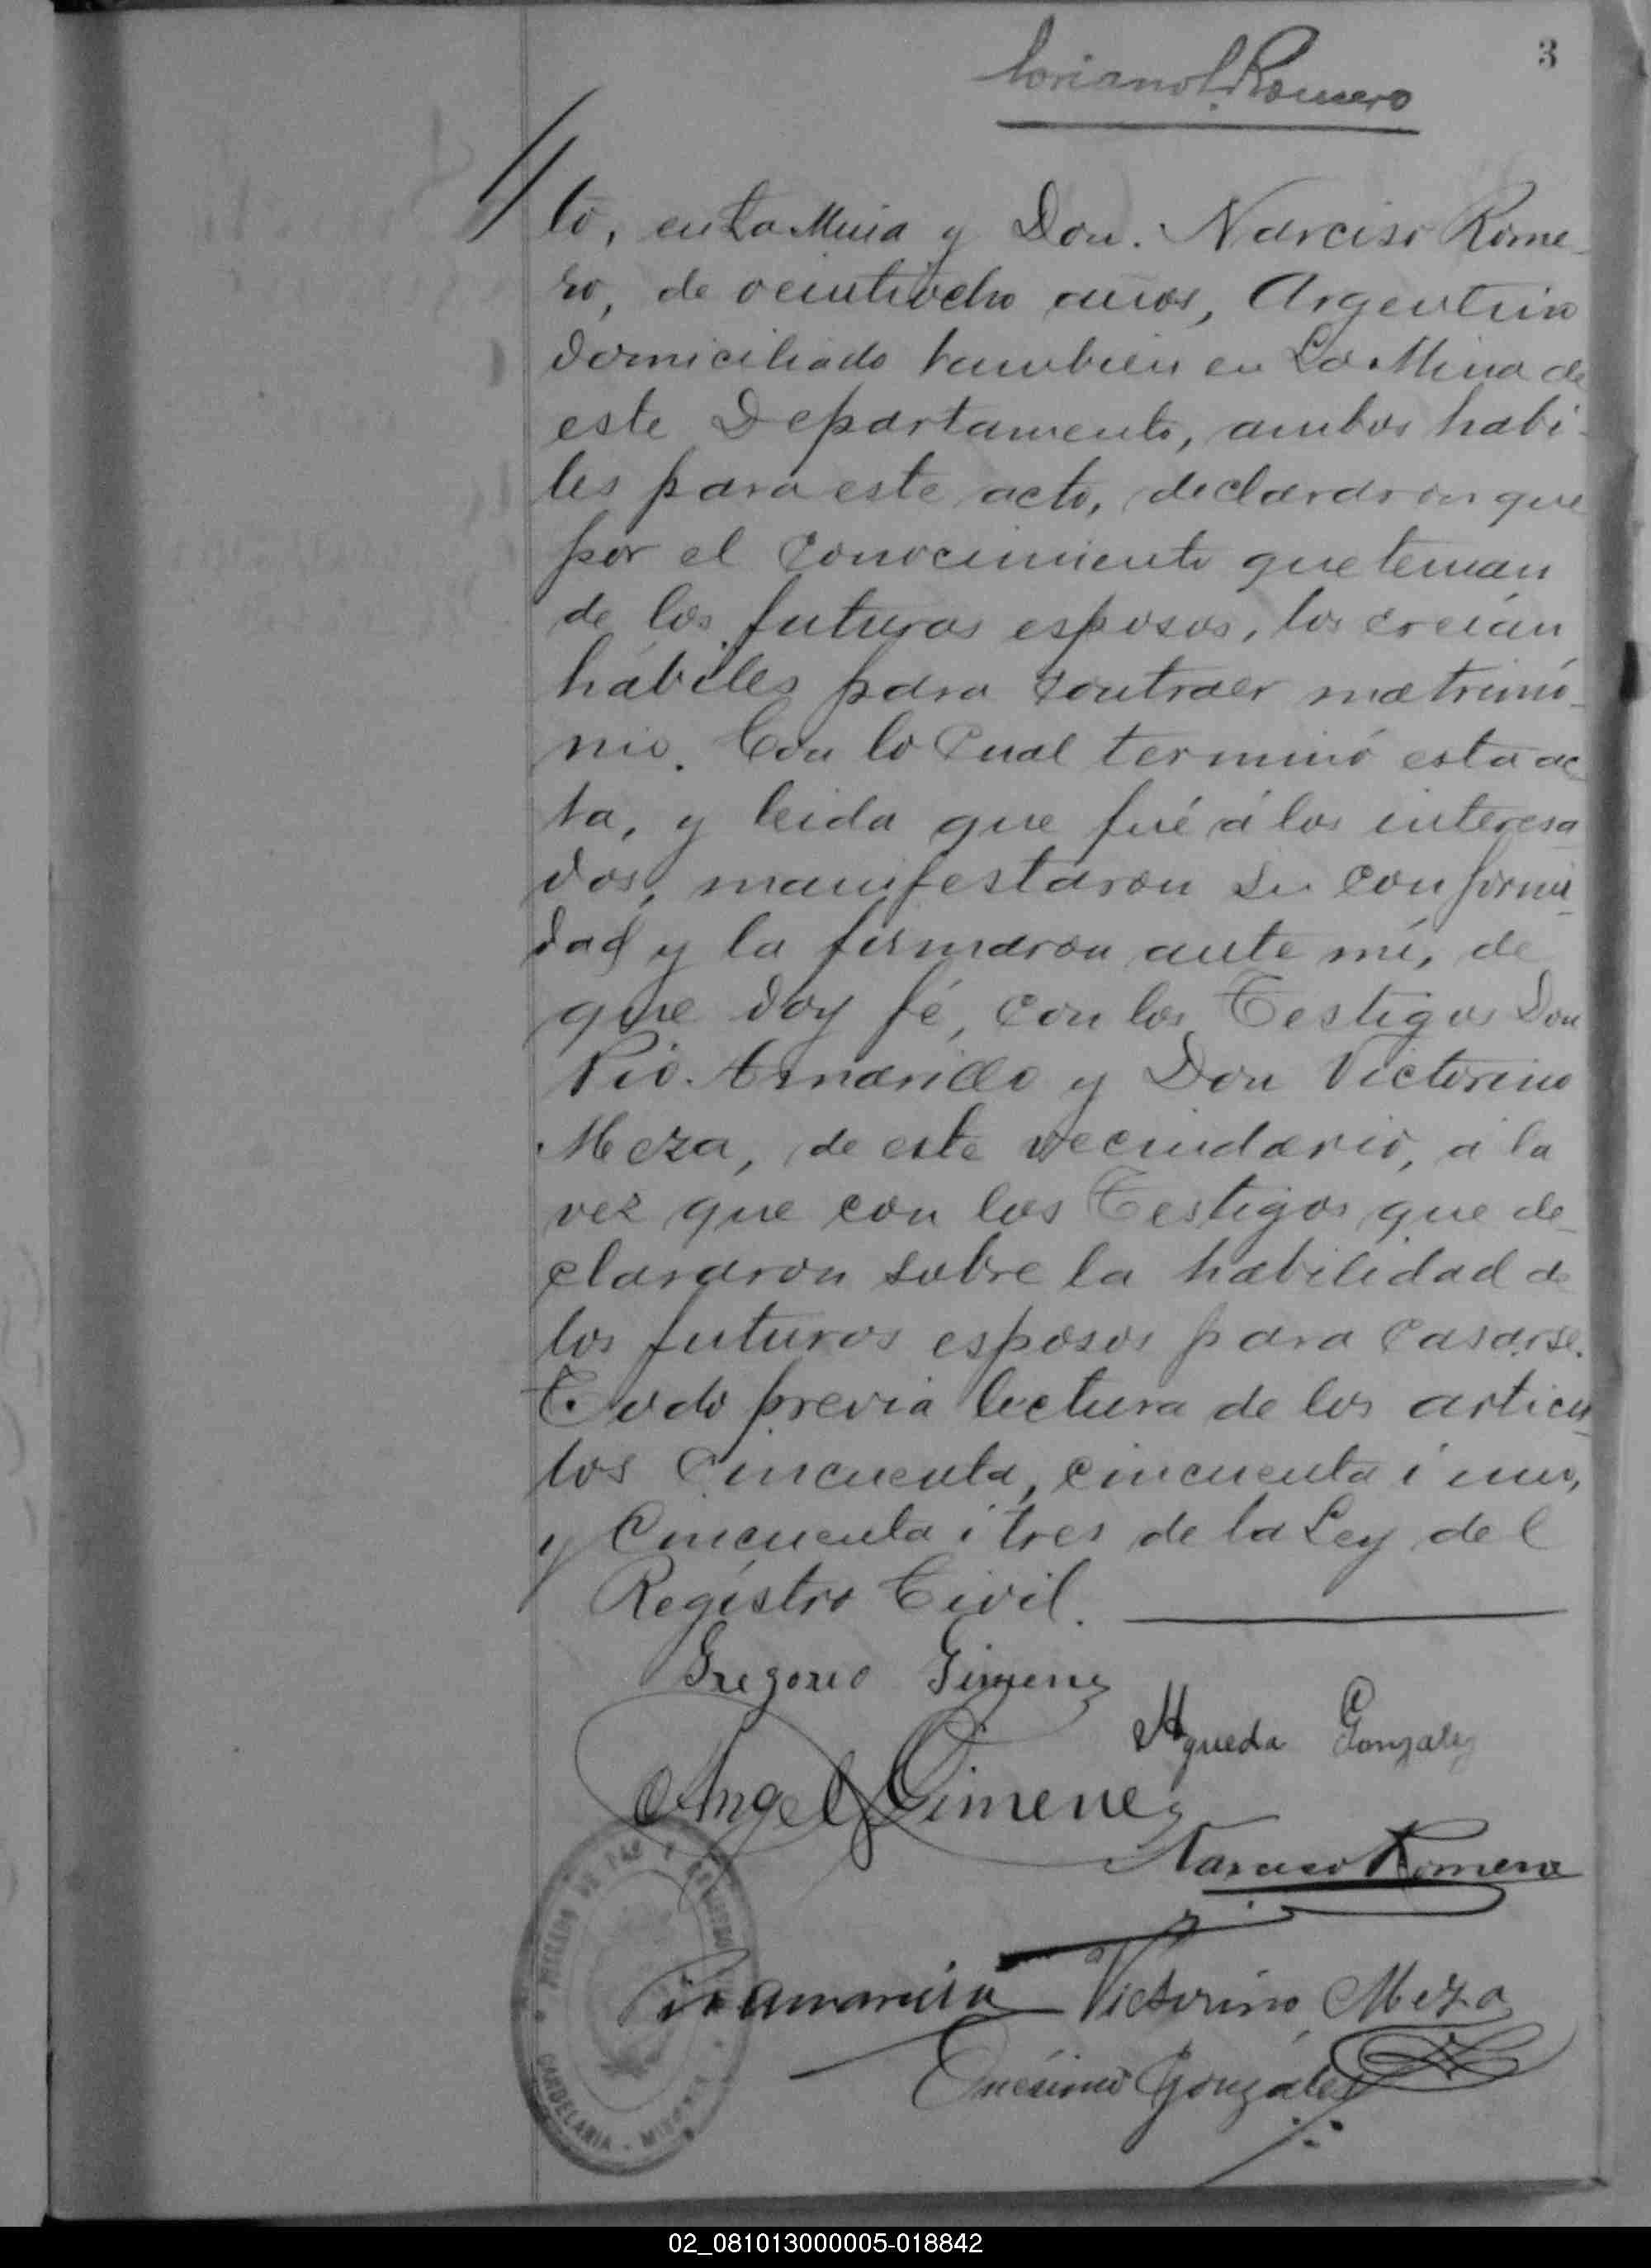 3
Coriano L. Romero
to, en La Mina y Don. Narciso Rome-
ro, de veintiocho años, Argentino
domiciliado tambien en La Mina de
este Departamento, ambos habi-
les para este acto, declararon que
por el conocimiento que tenían
de los futuros esposos, los creían
hábiles para contraer matrimó-
nio. Con lo cual terminó esta ac-
ta, y leida que fué á los interesa-
dos, manifestaron su conformi-
dad y la firmaron ante mí, de
que doy fé, con los Testigos Don
Pio Amarillo y Don Victorino
Meza, de este vecindario, á la
vez que con los Testigos que de-
clararon sobre la habilidad de
los futuros esposos para casarse.
Todo previa lectura de los articu-
los Cincuenta, cincuenta i uno,
y Cincuenta i tres de la Ley del
Registro Civil.
Gregorio Gimenez
Agueda Gonzalez
Angel Gimenez
Narciso Romero
Pio Amarilla Victorino Meza
Onésimo Gonzáles
JUZGADO DE PAZ Y REGISTRO
CANDELARIA - MISIONES
02_081013000005-018842